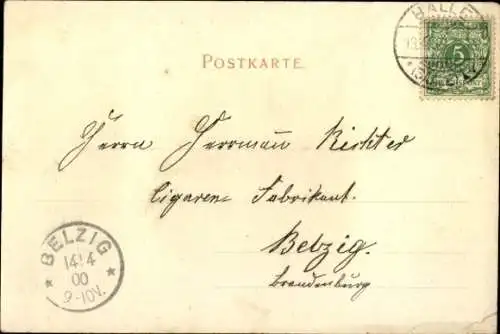 HALLE
5
POSTKARTE.
Herrn Herrmann Richter
Cigaren-Fabrikant.
Belzig.
Brandenburg
* BELZIG *
14.4
00
9-10V.